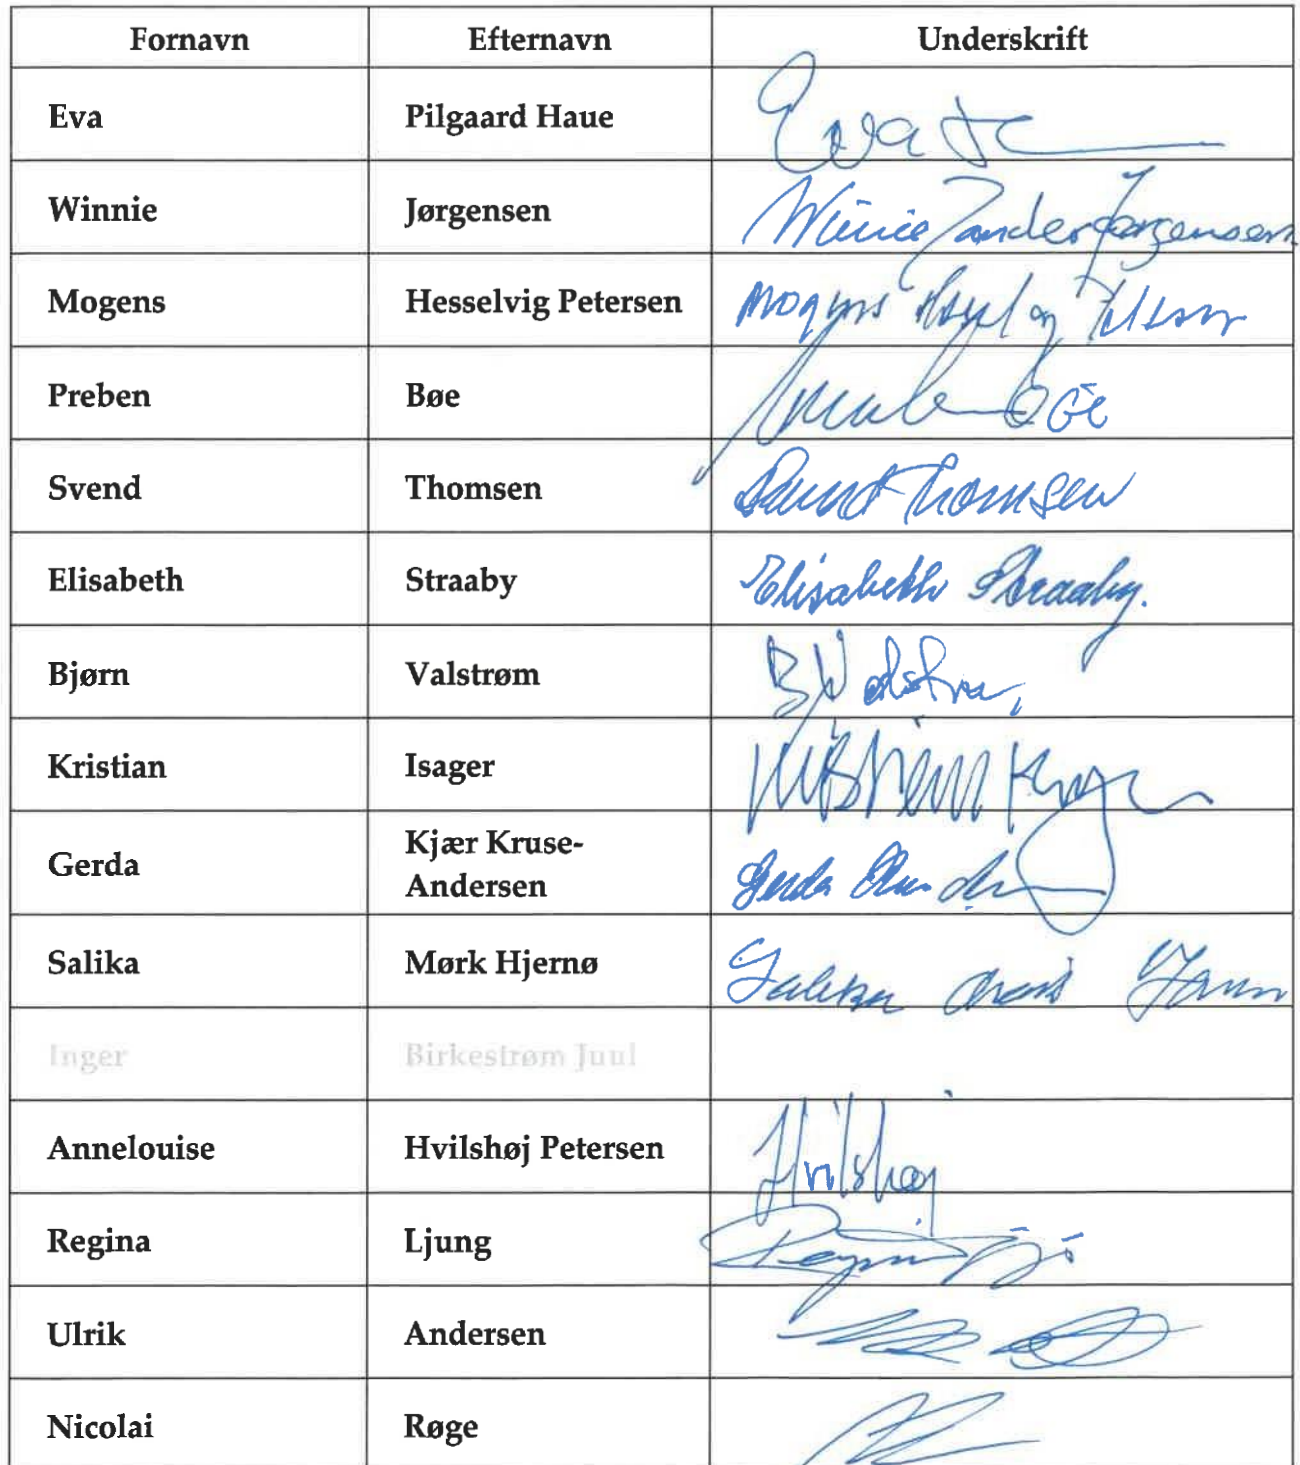 Fornavn Efternavn Underskrift
Eva Pilgaard Haue Eva
Winnie Jørgensen Winnie Zander Jørgensen
Mogens Hesselvig Petersen Mogens
Preben Bøe Bøe
Svend Thomsen Svend Thomsen
Elisabeth Straaby Elisabeth Straaby.
Bjørn Valstrøm
Kristian Isager Kristian
Kjær Kruse-
Gerda Gerda
Andersen
Salika Mørk Hjernø Salika
Inger Birkestrøm Juul
Annelouise Hvilshøj Petersen Hvilshøj
Regina Ljung
Ulrik Andersen
Nicolai Røge